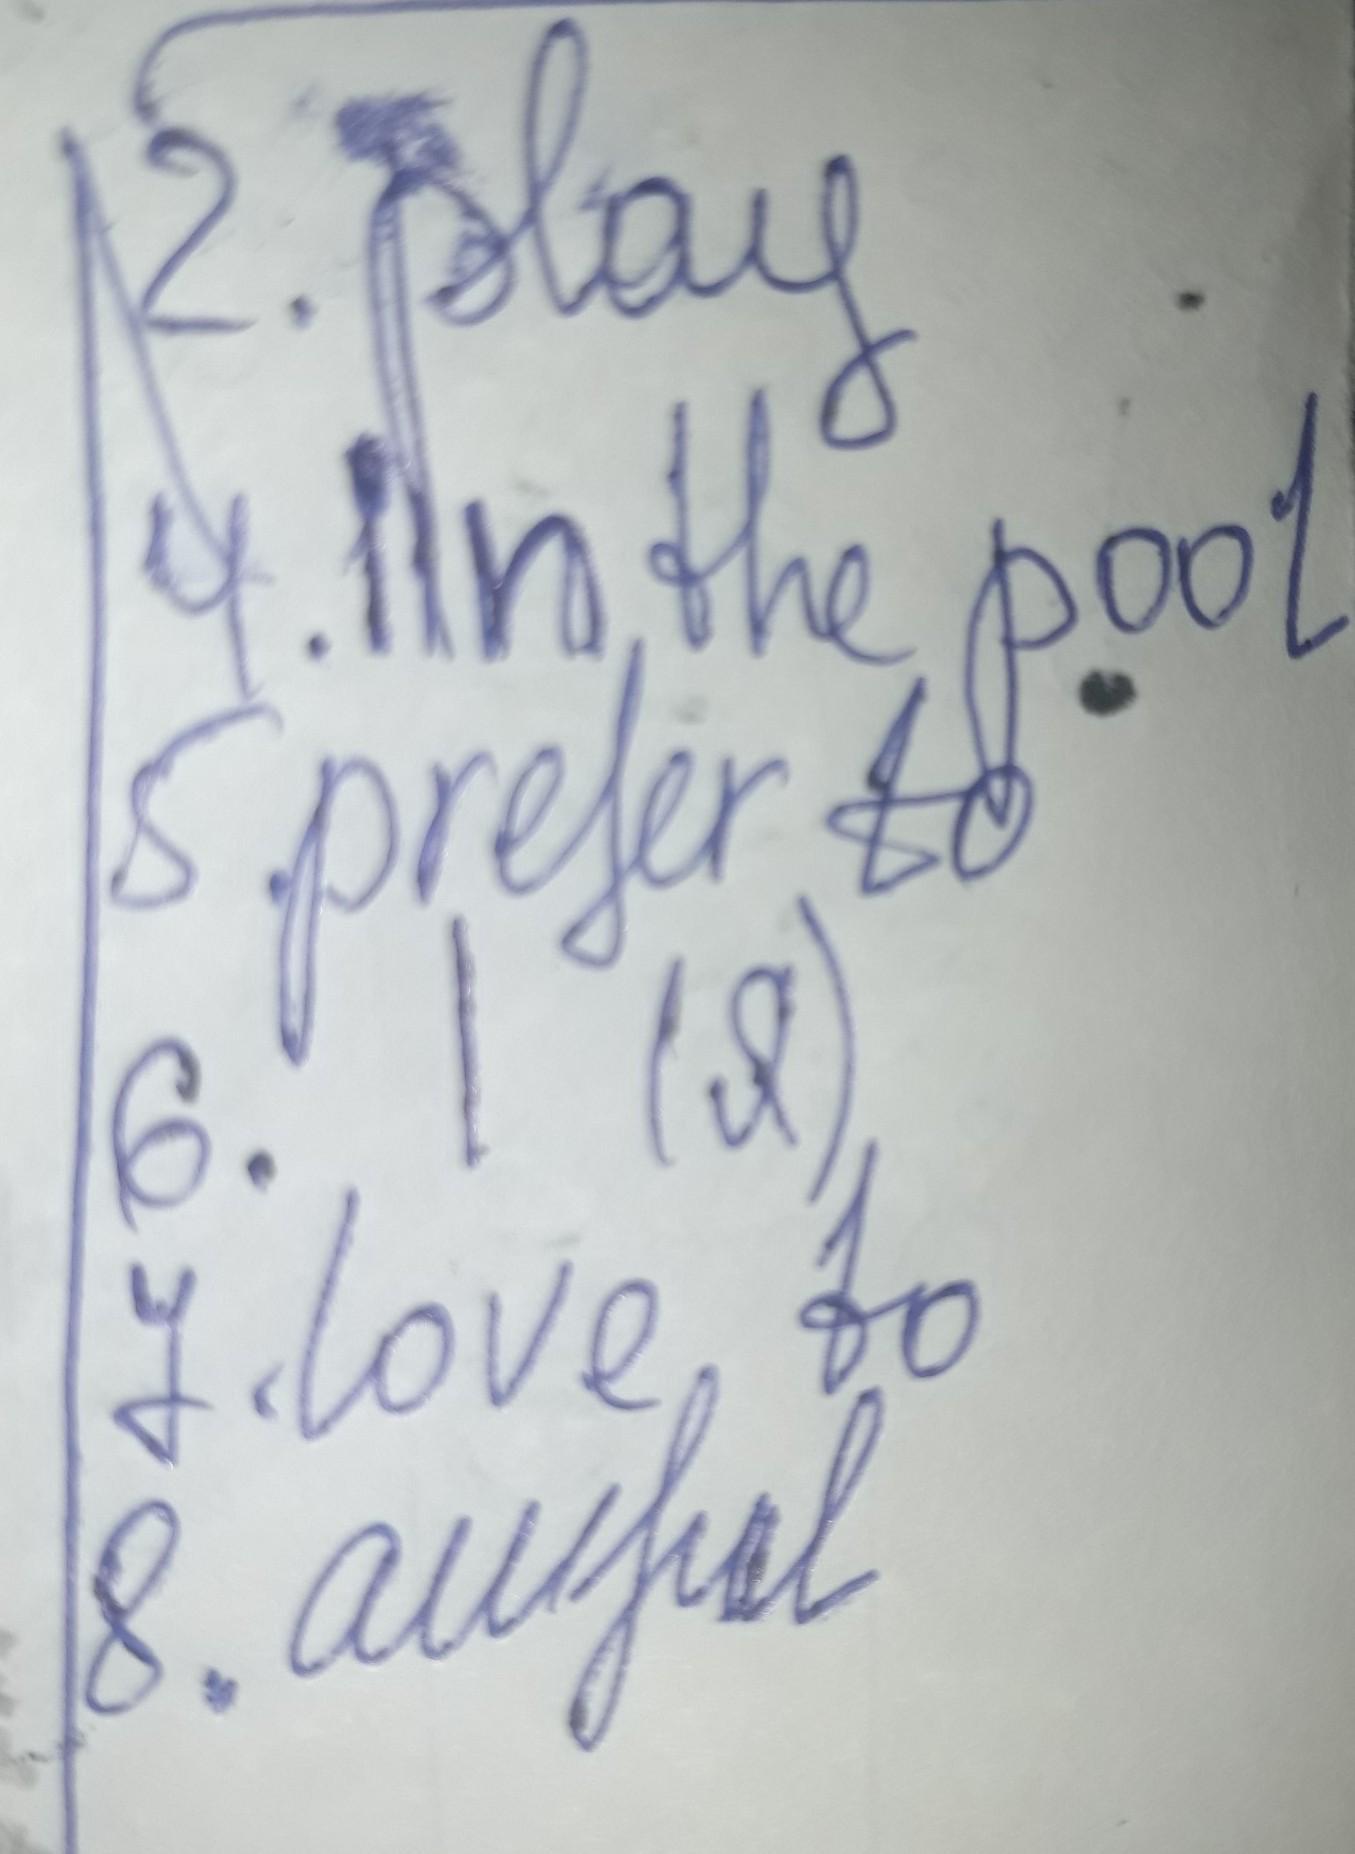 2. play
4. In the pool
5. prefer to
6. I (я)
7. love to
8. awful